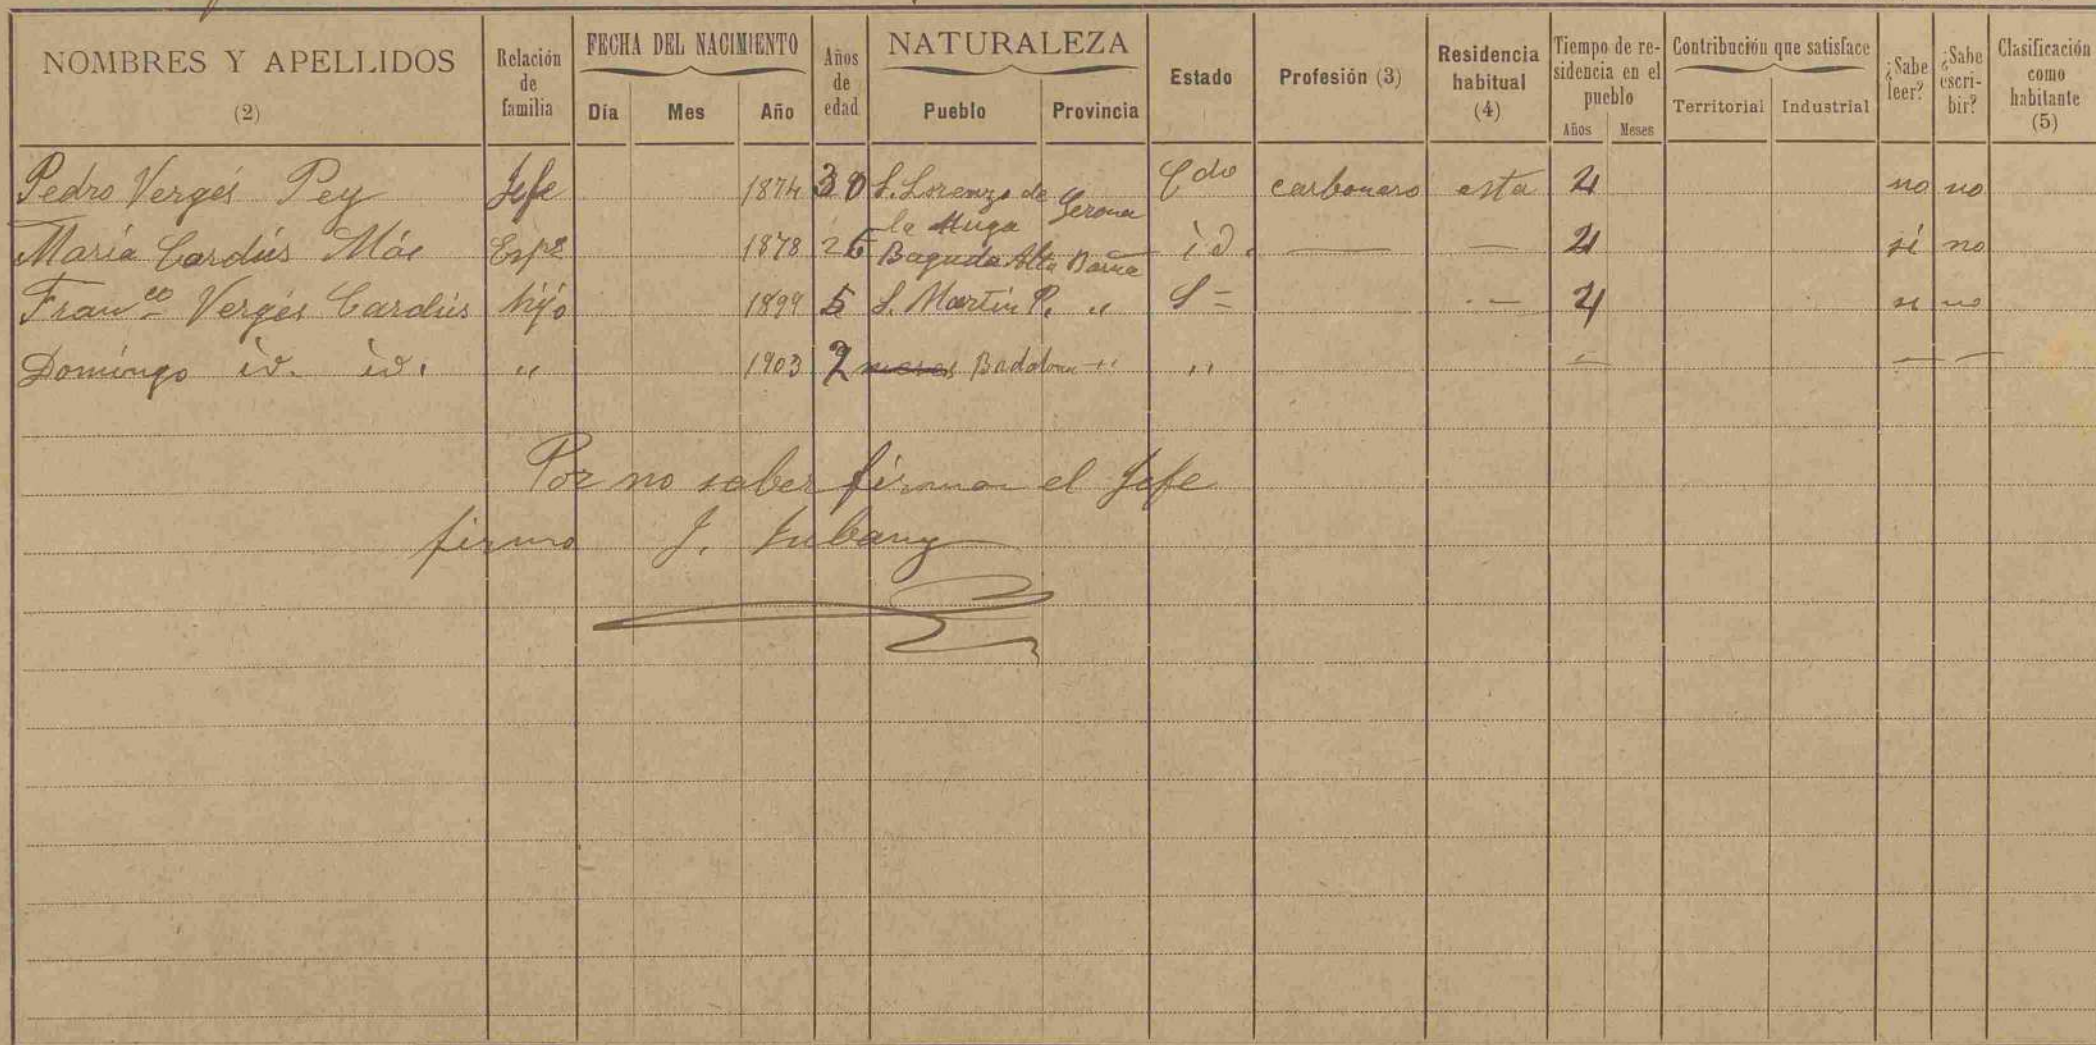 NOMBRES Y APELLIDOS (2) Relación de familia FECHA DEL NACIMIENTO Día Mes Año Años de edad NATURALEZA Pueblo Provincia Estado Profesión (3) Residencia habitual (4) Tiempo de residencia en el pueblo Años Meses Contribución que satisface Territorial Industrial ¿Sabe leer? ¿Sabe escribir? Clasificación como habitante (5)
Pedro Vergés Pey Jefe 1874 30 S. Lorenzo de la Muga Gerona Cdo carbonero esta 4 no no
María Cardús Mác Espª 1878 26 Bagudá Alta Barna id. — — 4 sí no
Franco Vergés Cardús hijo 1899 5 S. Martín P. " S = — 4 si no
Domingo id. id. " 1903 2 meses Badalona " " — — —
Por no saber firmar el Jefe
firmo J. Jubany